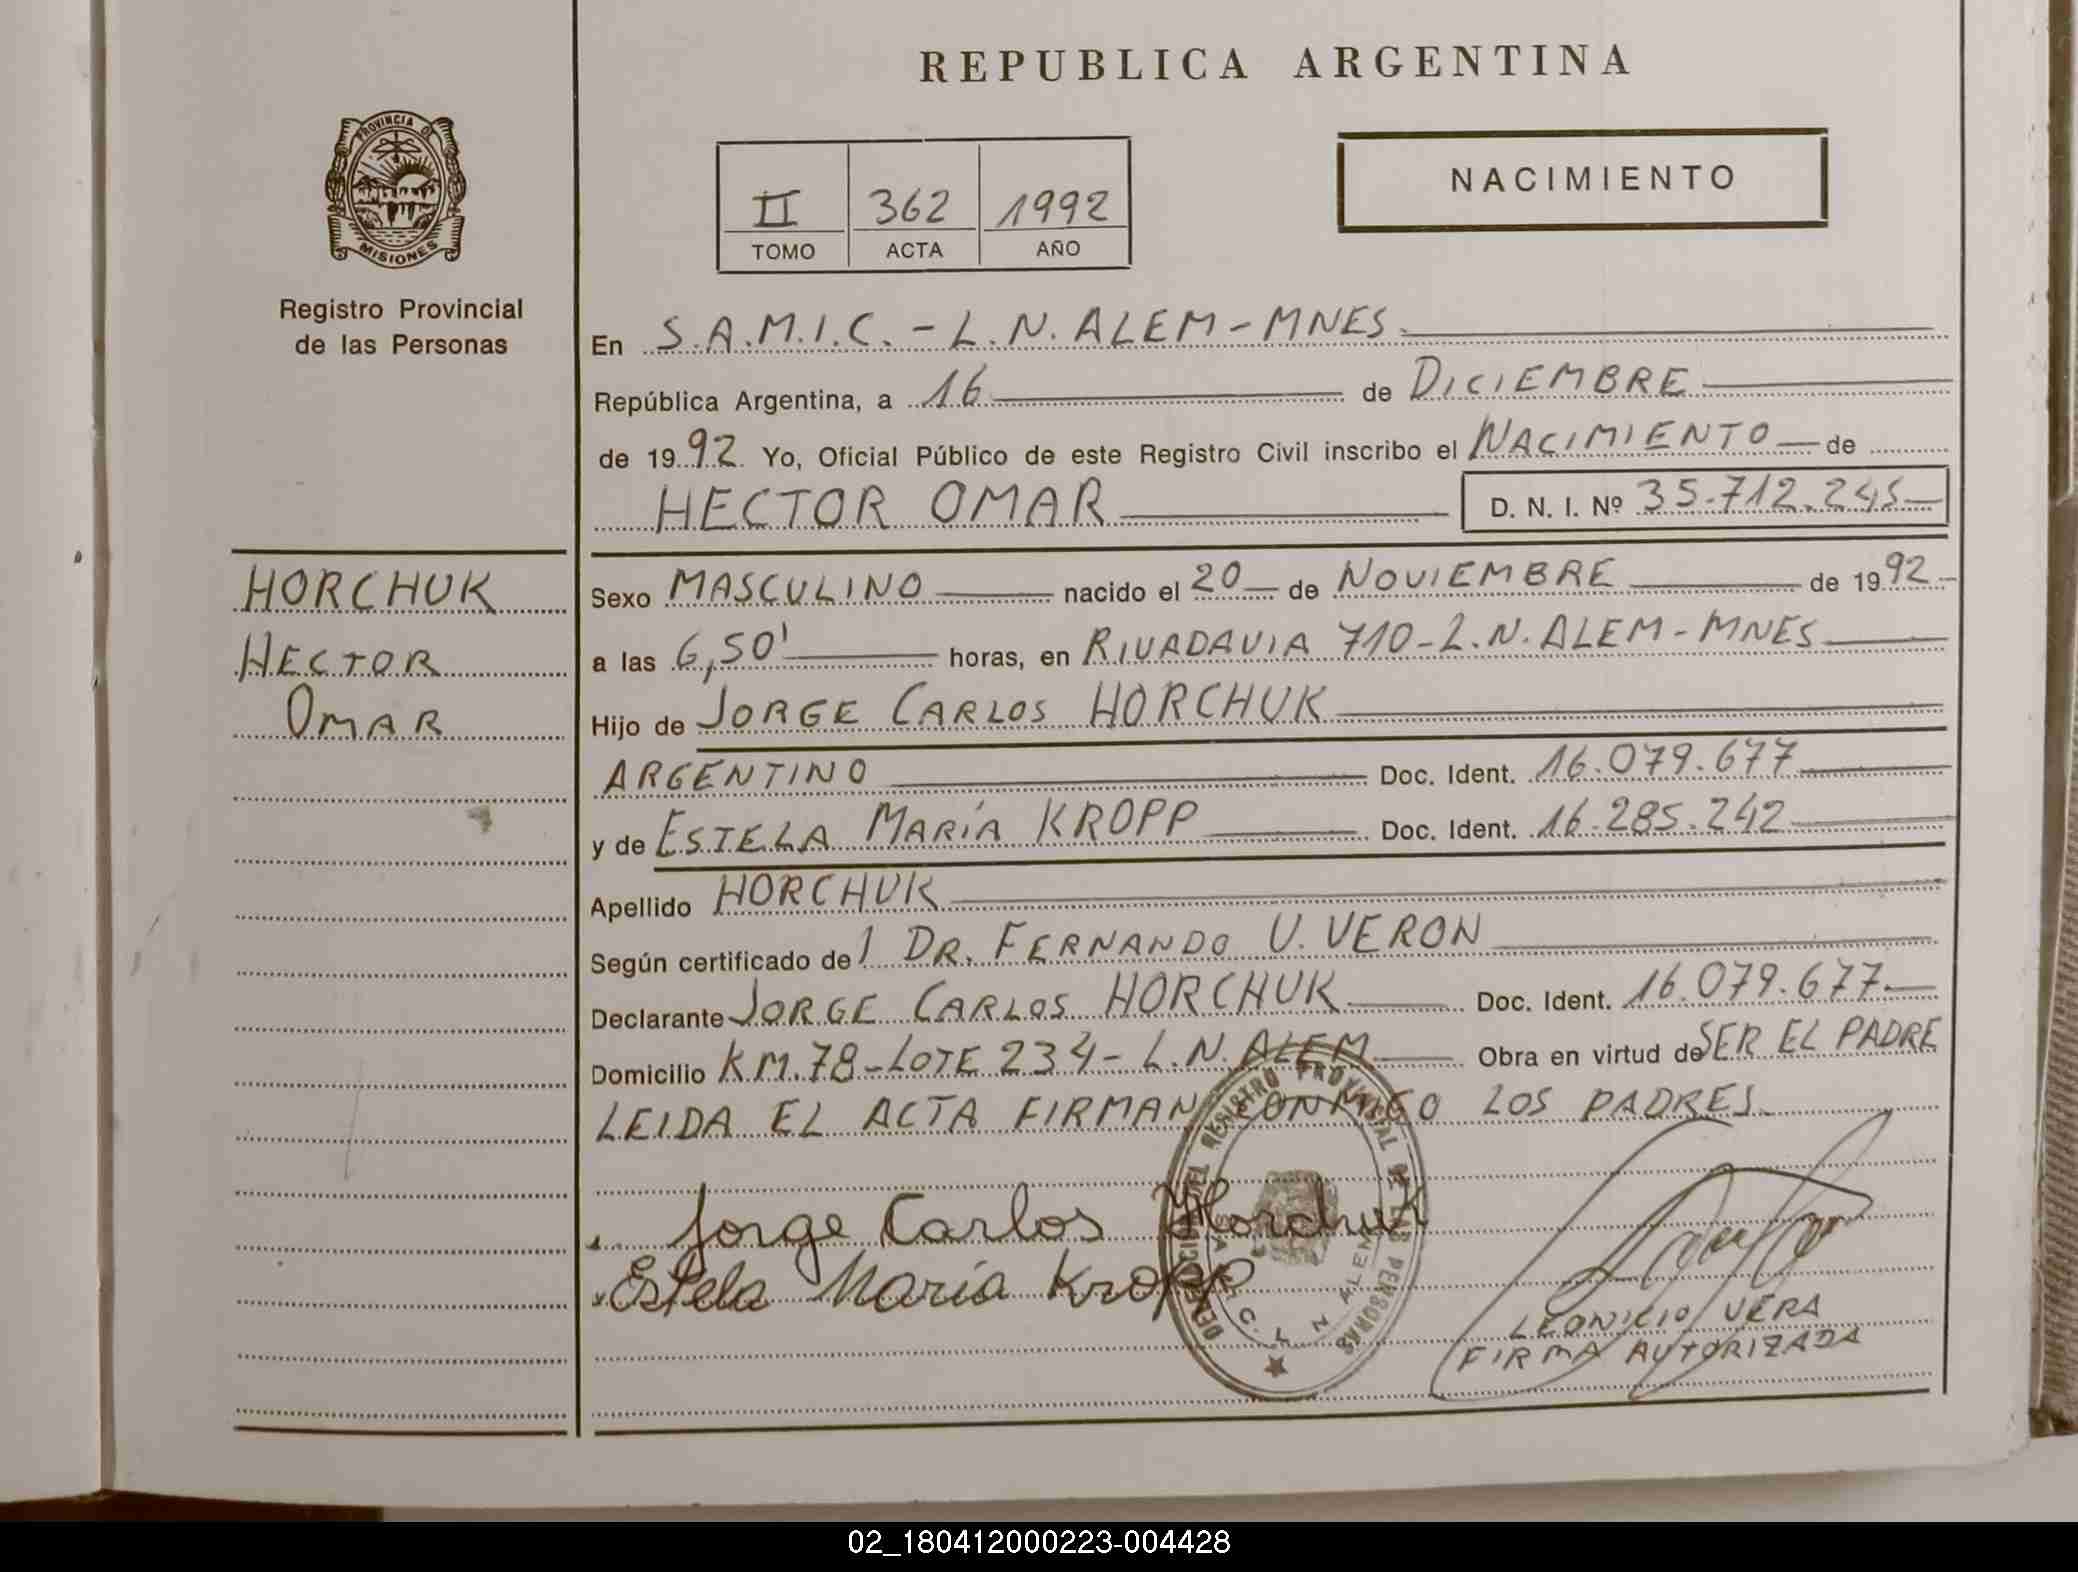 REPUBLICA ARGENTINA
PROVINCIA DE
MISIONES
Registro Provincial
de las Personas
II 362 1992
TOMO ACTA AÑO
NACIMIENTO
En S.A.M.I.C. - L.N. ALEM - MNES
República Argentina, a 16 de DICIEMBRE
de 1992 Yo, Oficial Público de este Registro Civil inscribo el NACIMIENTO de
HECTOR OMAR D. N. I. Nº 35.712.245
HORCHUK
HECTOR
OMAR
Sexo MASCULINO nacido el 20 de NOVIEMBRE de 1992
a las 6,50' horas, en RIVADAVIA 710 - L.N. ALEM - MNES
Hijo de JORGE CARLOS HORCHUK
ARGENTINO Doc. Ident. 16.079.677
y de ESTELA MARÍA KROPP Doc. Ident. 16.285.242
Apellido HORCHUK
Según certificado del DR. FERNANDO U. VERON
Declarante JORGE CARLOS HORCHUK Doc. Ident. 16.079.677
Domicilio KM. 78 - LOTE 234 - L.N. ALEM Obra en virtud de SER EL PADRE
LEIDA EL ACTA FIRMAN CONMIGO LOS PADRES.
Jorge Carlos Horchuk
Estela María Kropp
REGISTRO PROVINCIAL DE LAS PERSONAS
L. N. ALEM
LEONICIO VERA
FIRMA AUTORIZADA
02_180412000223-004428